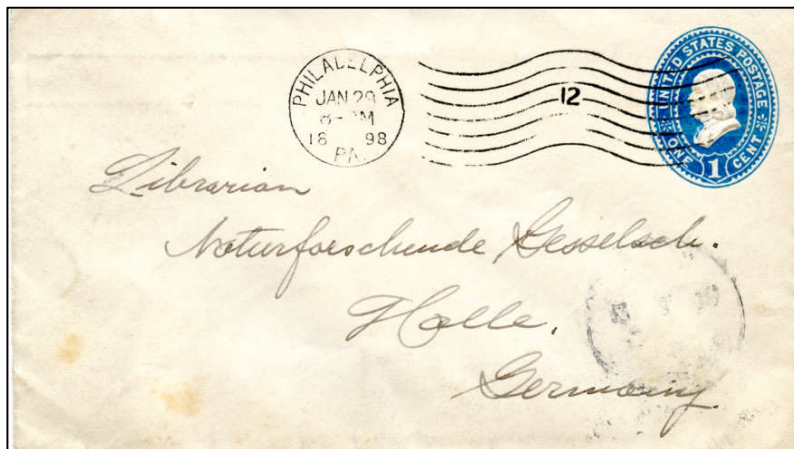 PHILADELPHIA
JAN 29
1898
PA.
12
UNITED STATES POSTAGE
ONE 1 CENT
Librarian
Naturforschende Gesselsch.
Halle.
Germany.